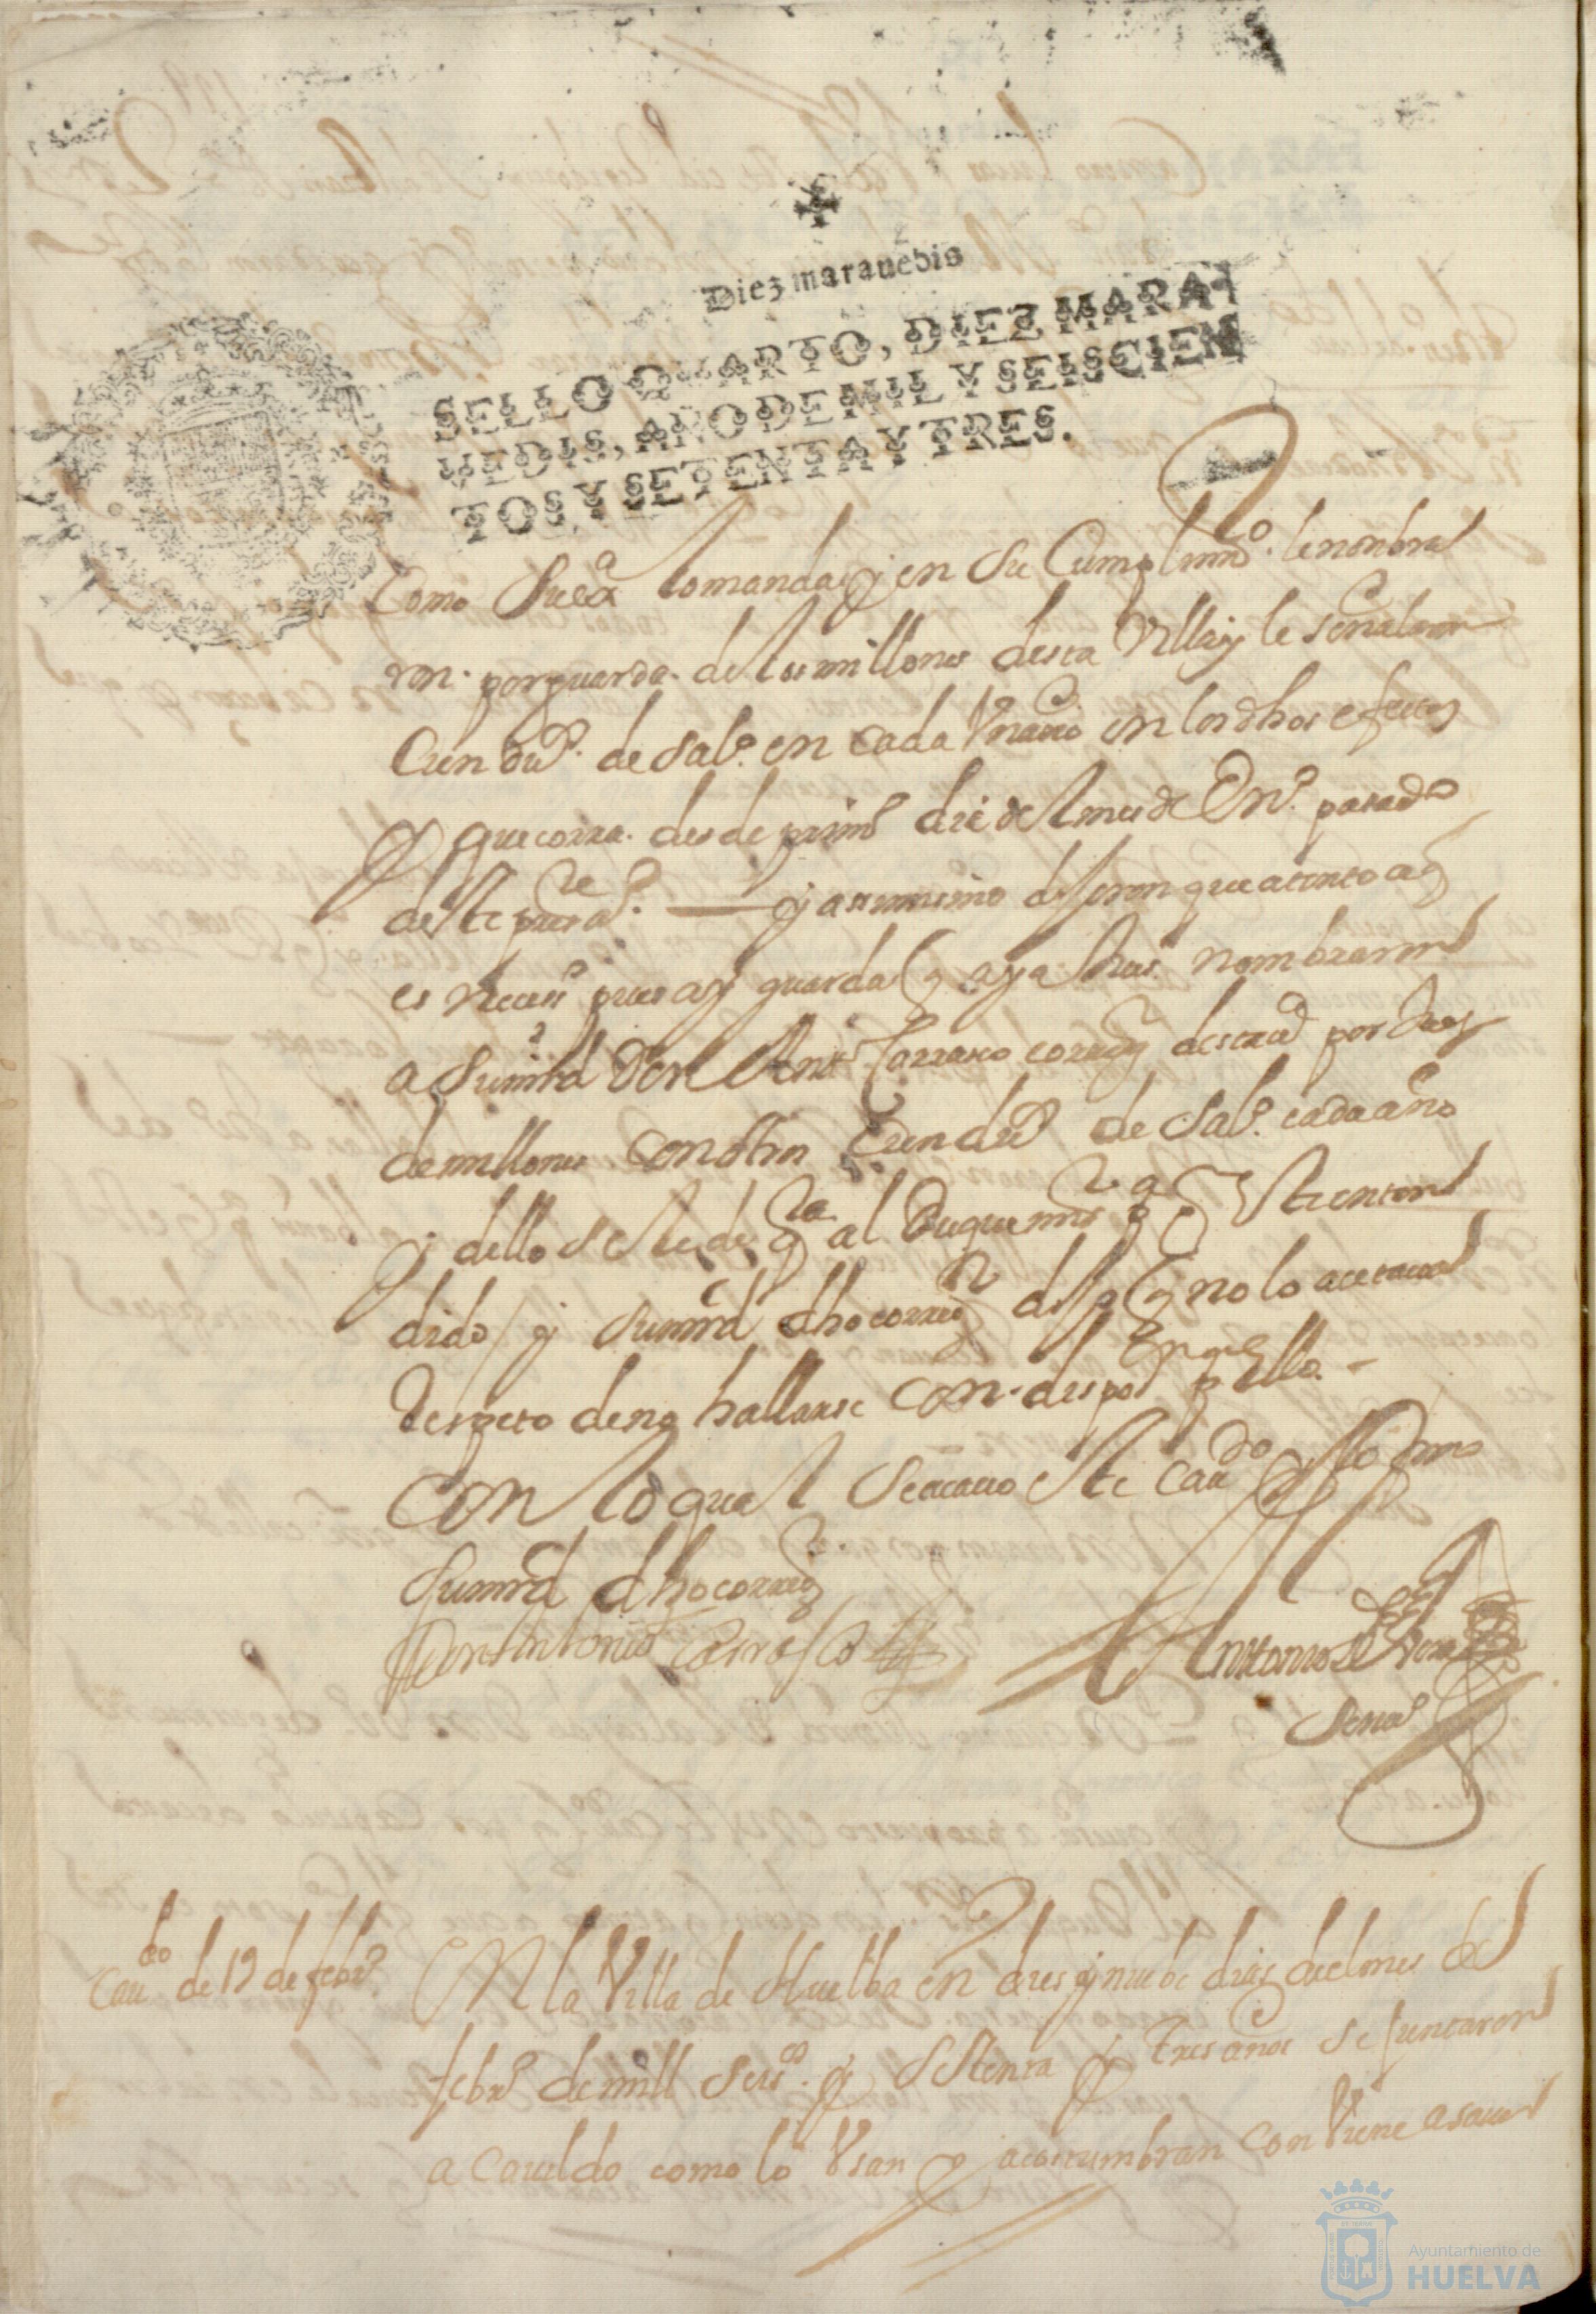 Diez marauedis
SELLO QVARTO, DIEZ MARA-
VEDIS, AÑO DE MIL Y SEISCIEN
TOS Y SETENTA Y TRES.
Como Su exa lo manda y en su Cumplimto. le nonbra
ron. por guarda. de los millones desta Villa y le señalaron
Cien dus. de salo. en cada Vn año en los dhos efectos
y que corra. desde primo dia del mes de Eno. pasado
deste preste año. — y assimismo dijeron que atento a q
es necesso pues ay guarda q aya Jues nombraron
a Su mrd Don Anto Carrasco corregor desta va por Juez
de millones con otros Cien dus de salo. cada año
y dello se le de qta al Duque mi sr pa q lo tenga enten
dido / y su mrd dho corregor dijo q no lo acetaua
Respeto de no hallarse con. dispon En qto pa ello. -
Con lo qual se acauo este caudo y lo firmo
Su mrd dho corregor
Don Antonio Carrasco
Antonio de
Senao
Caudo de 19 de febro.
En la Villa de Huelba en dies y nuebe dias del mes de
febro de mill seisos. y setenta y tres años se juntaron
a Cauildo como lo Vsan y acostumbran conbiene a sauer
Ayuntamiento de
HUELVA